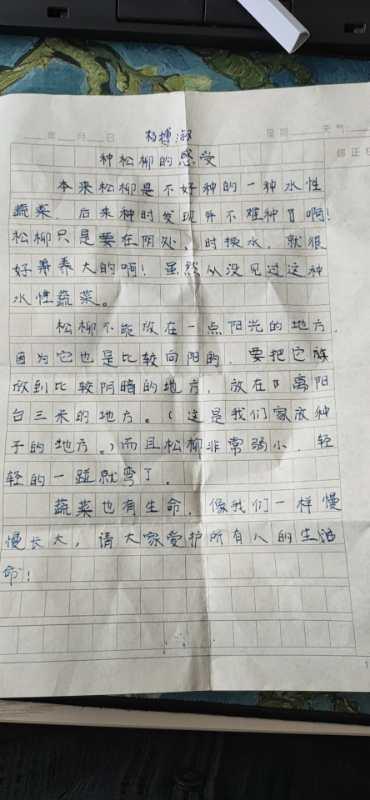 年 月 日 杨博 星期 天气
种松柳的感受
本来松柳是不好种的一种水性
蔬菜，后来种时发现并不难种啊！
松柳只是要在阴处，时换水，就很
好养养大的啊！虽然从没见过这种
水性蔬菜。
松柳不能放在一点阳光的地方，
因为它也是比较向阳的，要把它
放到比较阴暗的地方，放在离阳
台三米的地方。（这是我们家放种
子的地方。）而且松柳非常弱小，轻
轻的一碰就弯了。
蔬菜也有生命，像我们一样慢
慢长大，请大家爱护所有人的生
命！